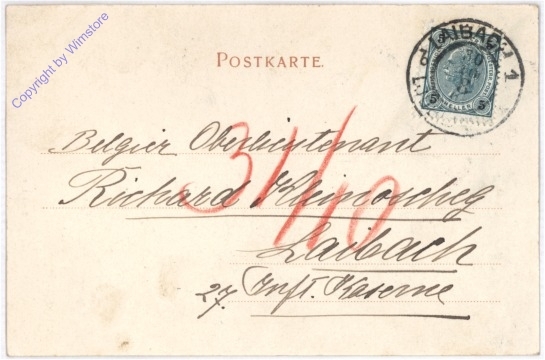 Copyright by Wimstore
POSTKARTE.
LAIBACH 1
HELLER
5 5
31/10
Belgier Oberlieutenant
Richard Kleinoscheg
Laibach
27. Inft. Kaserne